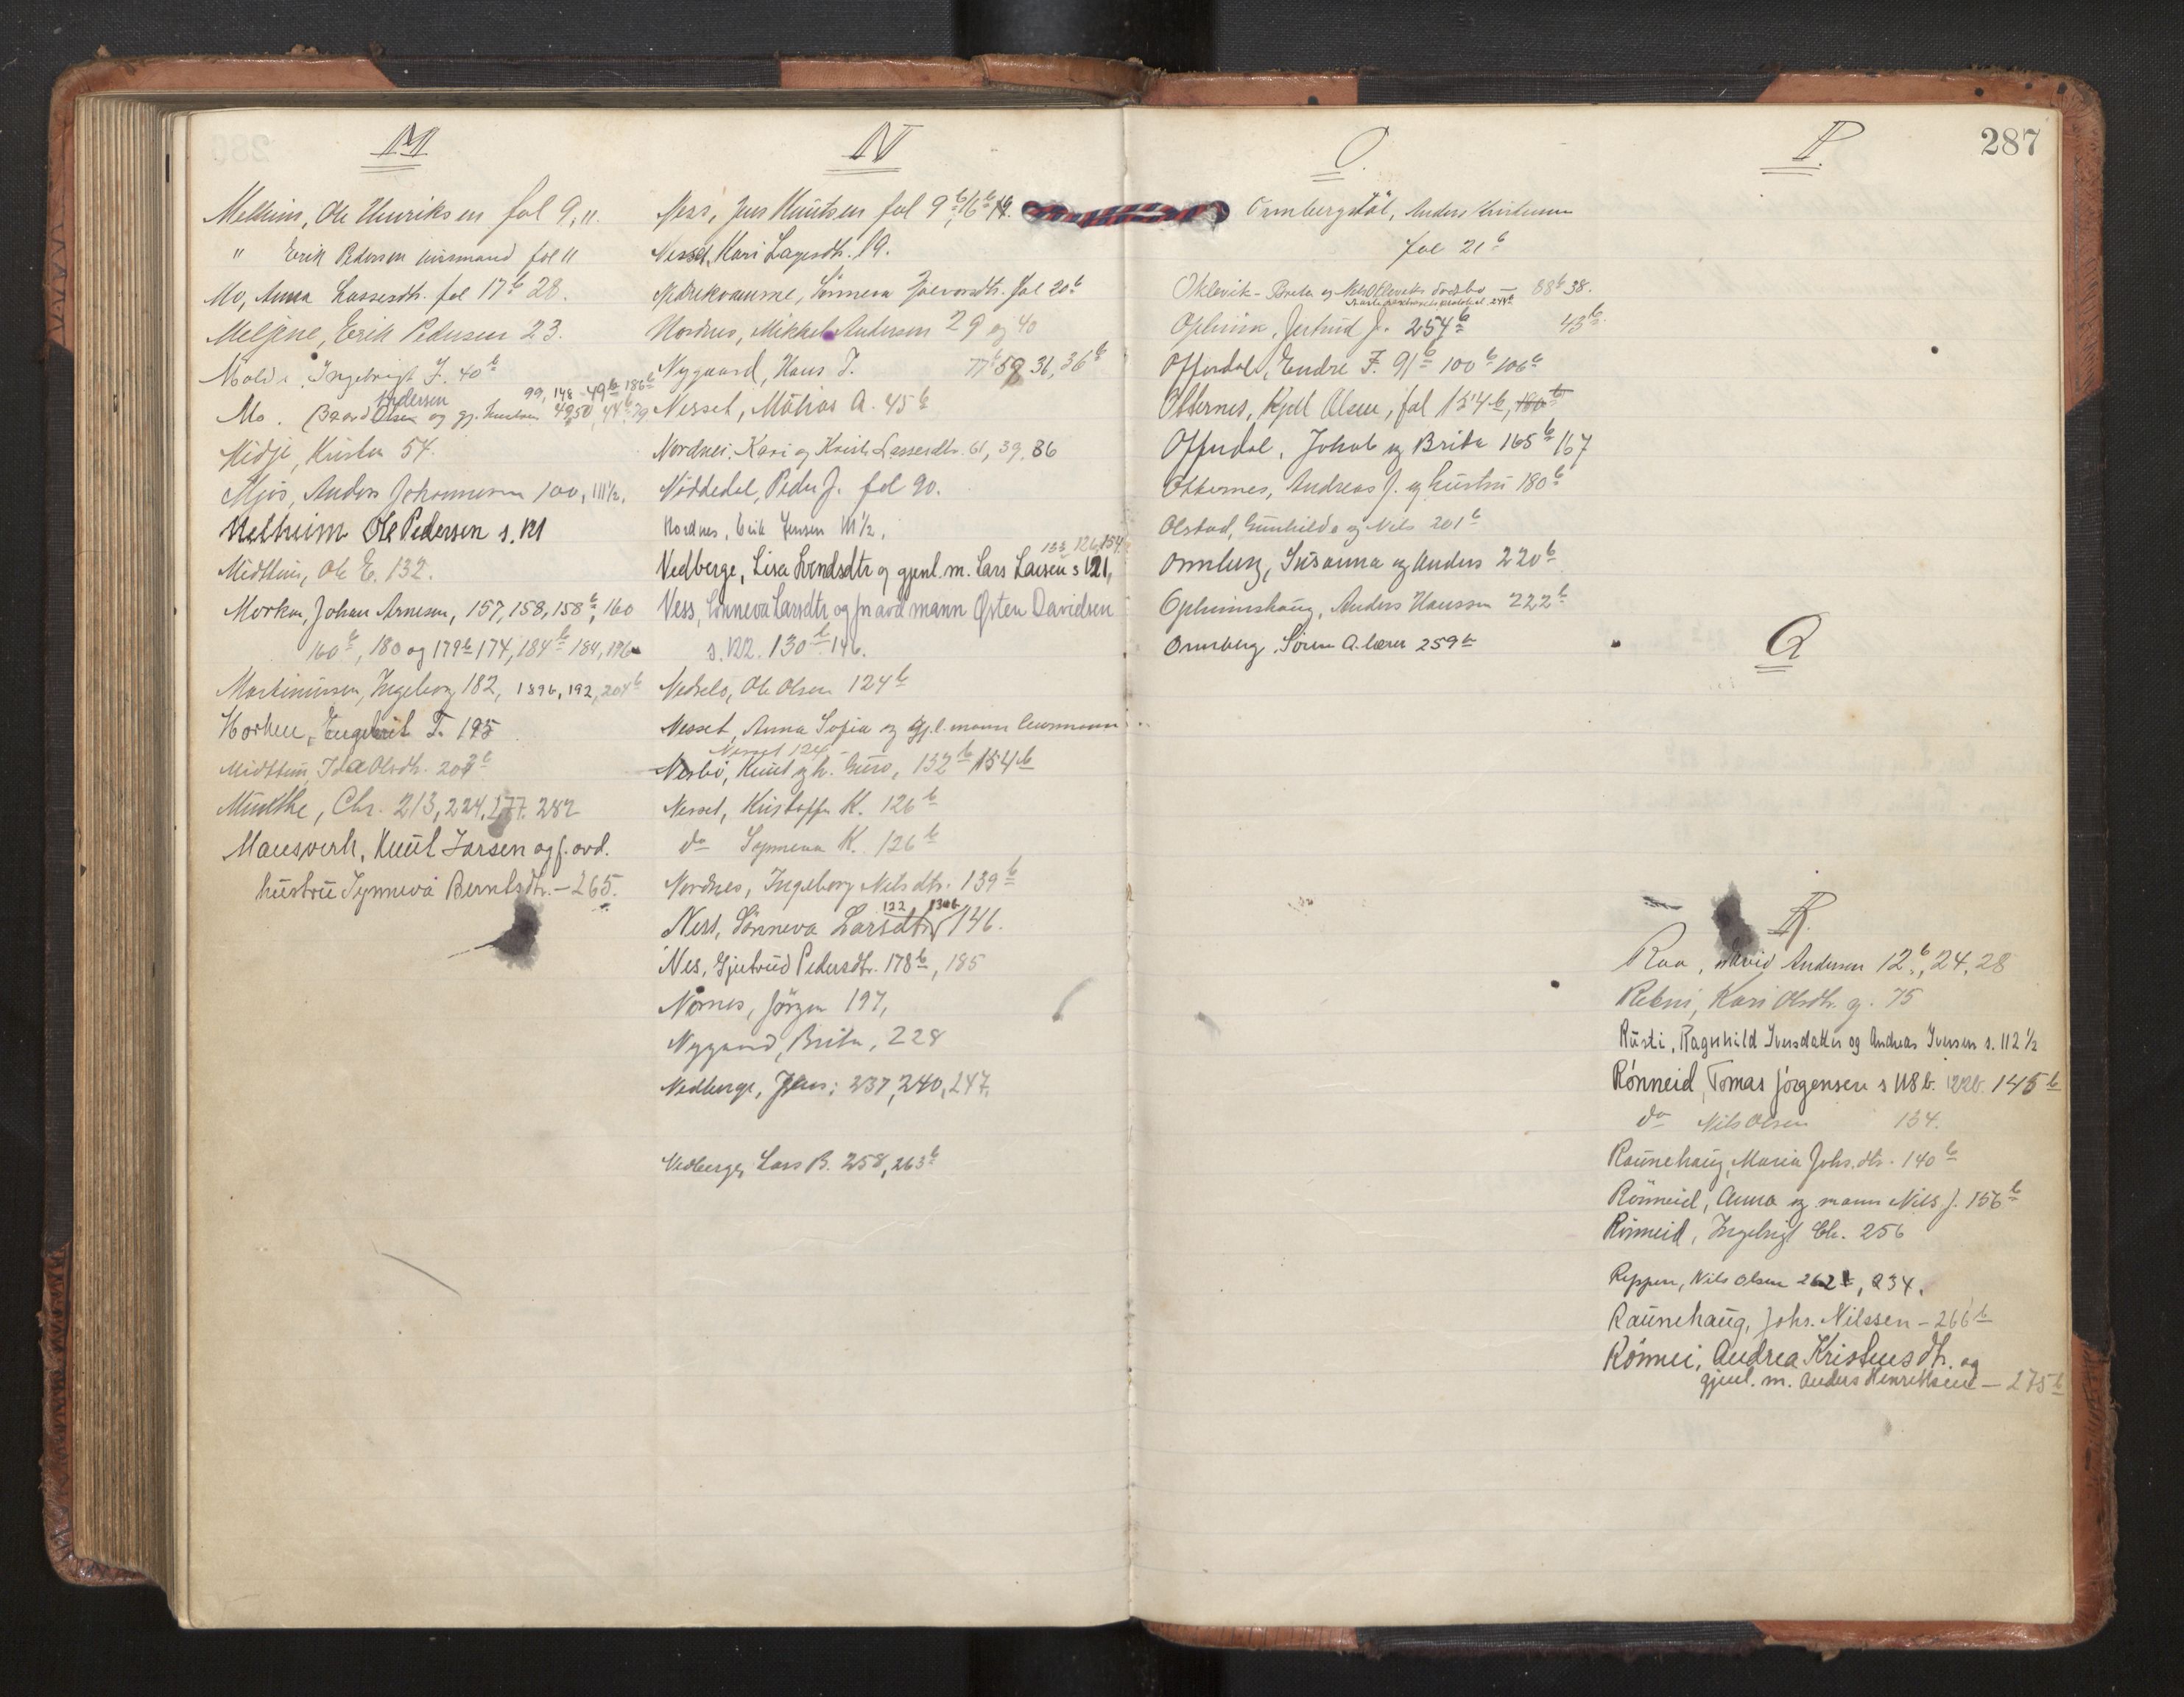 M
Melheim, Ole Henriksen fol 9, 11.
" Erik Pedersen husmand fol 11
Mo, Anna Lassesdtr. fol 17b 28.
Meljene, Erik Pedersen 23.
Molde, Ingebrigt J. 40b
99, 148 49b 186b
Andersen
Mo. Baard Olsen og gj. 4950, 44b 79
Midje, Kristen 54.
Mjøs, Anders Johannesen 100, 111½,
Melheim Ole Pedersen s. 121
Midthun, Ole E. 132.
Morken, Johan Arnesen, 157, 158, 158b, 160
160b, 180 og 179b 174, 184b 184, 196
Martinussen, Ingeborg 182, 189b, 192, 204b
Morken, Engebret T. 195
Midthun, Ida Olsdtr. 203b
Munthe, Chr. 213, 224, 177. 282
Mausverk, Knut Larsen og f. avd.
hustru Synneva Berntsdtr. – 265.
N
Ness, Jens Knutsen fol 9b, 16b 19.
Nesset, Kari Lagesdtr. 19.
Nedrekvamme, Sønneva fol 20b
Nordnes, Mikkel Andersen 29 og 40
Nygaard, Hans J. 77b 58 31, 36b
Nesset, Matias A. 45b
Nordnes, Kari og Kristi Lassesdtr. 61, 39, 86
Nøddedal, Peder J. fol 90.
Nordnes, Erik Jensen 111½,
133, 126, 154
Nedberge, Lisa Svendsdtr og gjenl. m. Lars Larsen s 121,
Ness, Sønneva Larsdtr og før avd mann Østen Davidsen
s. 122. 130b 146.
Nedrelo, Ole Olsen 124b
Nesset, Anna Sofia og gjl. mann
Nesset 124
Nesbø, Knut og h. Guro, 132b 154b
Nesset, Kristoffer K. 126b
do Synneva K. 126b
Nordnes, Ingeborg Nilsdtr. 139b
122 130b
Ness, Sønneva Larsdtr 146.
Nes, Gjertrud Pedersdtr. 178b, 185
Nornes, Jørgen 197,
Nygaard, Brita, 228
Nedberge, Jens: 237, 240, 247.
Nedberge, Lars B. 258, 263b
O.
Ormbergstøl, Anders Kristensen
fol 21b
Oklevik – Brita og Nels Oklevik dødsbo – 88b 38.
244b
Opheim, Jertrud J. 254b 43b.
Offerdal, Endre F. 91b 100b 106b
Otternes, Kjell Olsen, fol 134b, 180b
Offerdal, Johab og Brita 165b 167
Otternes, Andreas J. og hustru 180b
Olstad, Gunhilda og Nils 201b
Ormberg, Susanna og Anders 220b
Opheimshaug, Anders Hanssen 222b
Ormberg, Søren A. lærer 259b
P.
287
Q
R.
Raa, David Andersen 12b, 24, 28
Rebni, Kari Olsdtr. g. 75
Rusti, Ragnhild Iversdatter og Andreas Iversen s. 112½
Rønneid, Tomas Jørgensen s 118b. 122b. 145b
do Nils Olsen 134.
Raunehaug, Maria Johs.dtr. 140b
Rønneid, Anna og mann Nils J. 156b
Rønneid, Ingebrigt Chr. 256
Reppen, Nils Olsen 262b, 234.
Raunehaug, Johs. Nilssen – 266b
Rønnei, Andrea Kristensdtr. og
gjenl. m. Anders Henriksen – 275b